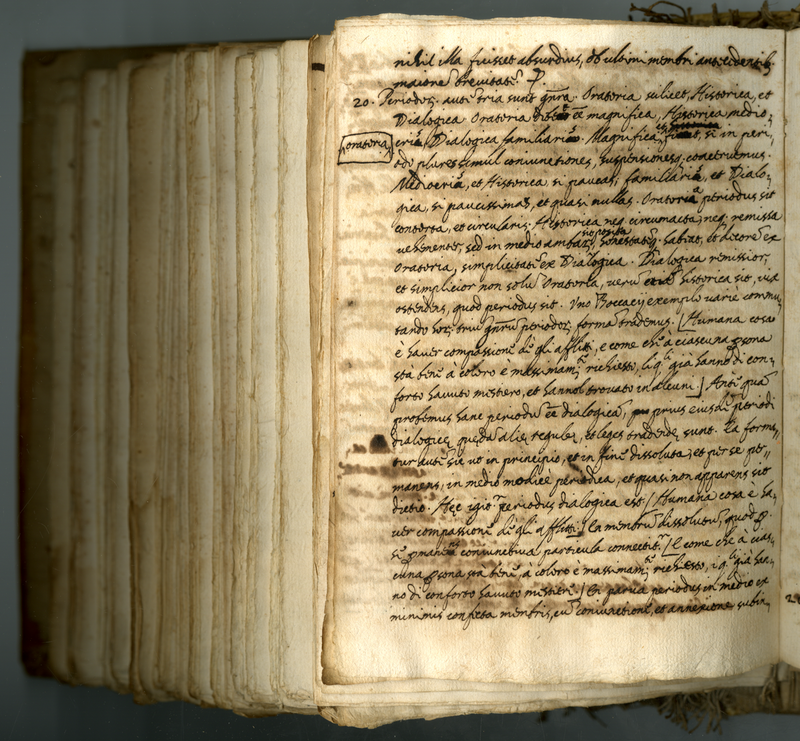 nihil illa fuisset absurdius, ob ultimi membri antecedentib,
maiorē brevitatē.
20. Periodoȝ autē tria sunt gn̄ra. Oratoria scilicet, Historica, et
Dialogica. Oratoria debet eē magnifica, Historica medio,
cris, Dialogica familiaris. Magnifica, si in peri,
oratoria
odo plures simul coniunctiones, suspensionesq construemus.
Mediocris, et Historica, si paucas; familiaris, et Dialo,
gica, si paucissimas, et quasi nullas. Oratoria periodus sit
contorta, et circularis. Historica neq circumacta, neq remissa
uehementer, sed in medio ambaȝ
honestatēq habeat, et decorē ex
Oratoria, simplicitatē ex Dialogica. Dialogica remissior,
et simplicior non solū Oratoria, verū historica sit, vix
ostendens, quod periodus sit. Uno Boccacij exemplo variè commu,
tando hoȝ triū gn̄rū periodoȝ formā trademus. [Humana cosa
è haver compassionē dē gli afflitti, e come chē à ciascuna psona
stà benē à coloro è massimamtē richiesto, li q.li già hanno di con,
forto havuto mistiero, et hannol trovato in alcuni.] Anteqūa
probemus hanc periodū eē dialogicā, prius eiusdē periodi
dialogicę quędā alię regulę, et leges tradendę sunt. Ea forme,
tur autē sic ut in principio, et in finē dissoluta, et per se per,
manens, in medio modicè periodica, et quasi non apparens sit
dictio. Hęc igīr periodus dialogica est. [Humana cosa è ha,
ver compassionē dē gli afflitti.] En membrū dissolutū, quod p
se pmanens coniunctiva particula connectitr [E come chē à cias,
cuna psona stà benē, à coloro è massimamtē richiesto, i q.li già han,
no di conforto havuto mistierē.] En parva periodus in medio ex
minimis confecta membris, cū coniunctionē, et annexionē subin,